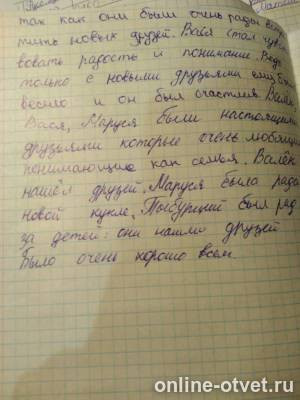 так как они были очень рады
тить новых друзей. Вася стал
вовать радость и понимание. Ведь
только с новыми друзьями ему
весело и он был счастлив. Валек
Вася, Маруся были настоящими
друзьями которые очень любящие
понимающие как семья. Валек
нашёл друзей. Маруся была рада
новой кукле. Тыбурций был рад
за детей: они нашли друзей
Было очень хорошо всем.
online-otvet.ru